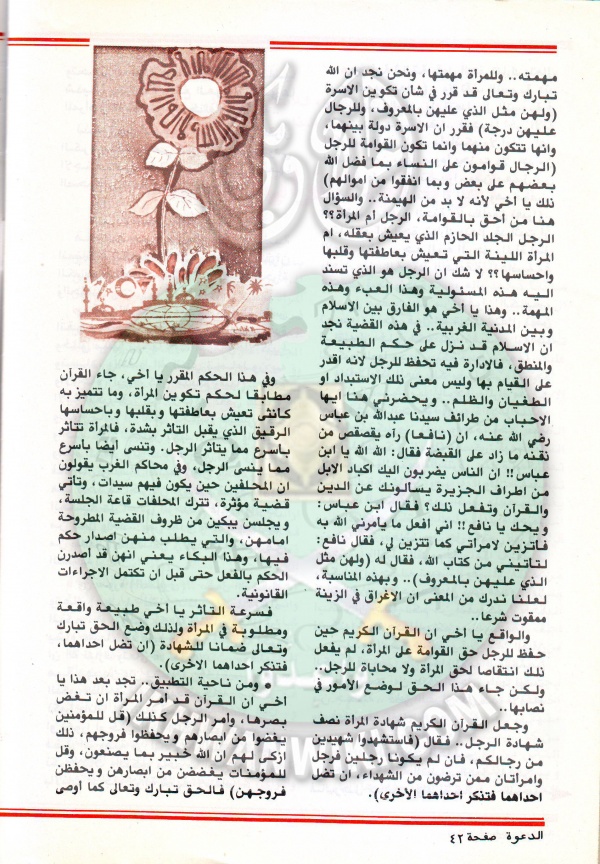 مهمته.. وللمرأة مهمتها، ونحن نجد ان الله
تبارك وتعالى قد قرر في شأن تكوين الاسرة
(ولهن مثل الذي عليهن بالمعروف، وللرجال
عليهن درجة) فقرر ان الاسرة دولة بينهما،
وانها تتكون منهما وانما تكون القوامة للرجل
(الرجال قوامون على النساء بما فضل الله
بعضهم على بعض وبما انفقوا من اموالهم)
ذلك يا أخي لأنه لا بد من الهيمنة.. والسؤال
هنا من أحق بالقوامة، الرجل أم المرأة؟؟
الرجل الجلد الحازم الذي يعيش بعقله، ام
المرأة اللينة التي تعيش بعاطفتها وقلبها
واحساسها؟؟ لا شك ان الرجل هو الذي تسند
اليه هذه المسئولية وهذا العبء وهذه
المهمة.. وهذا يا أخي هو الفارق بين الاسلام
وبين المدنية الغربية.. في هذه القضية نجد
ان الاسلام قد نزل على حكم الطبيعة
والمنطق، فالادارة فيه تحفظ للرجل لانه اقدر
على القيام بها وليس معنى ذلك الاستبداد او
الطغيان والظلم.. ويحضرني هنا ايها
الاحباب من طرائف سيدنا عبدالله بن عباس
رضي الله عنه، ان (نافعا) رآه يقصقص من
ذقنه ما زاد على القبضة فقال: الله الله يا ابن
عباس!! ان الناس يضربون اليك اكباد الابل
من اطراف الجزيرة يسألونك عن الدين
والقرآن وتفعل ذلك؟ فقال ابن عباس:
ويحك يا نافع!! اني افعل ما يأمرني الله به
فأتزين لامراتي كما تتزين لي، فقال نافع:
لتأتيني من كتاب الله، فقال له (ولهن مثل
الذي عليهن بالمعروف).. وبهذه المناسبة،
لعلنا ندرك من المعنى ان الاغراق في الزينة
ممقوت شرعا..
والواقع يا اخي ان القرآن الكريم حين
حفظ للرجل حق القوامة على المرأة، لم يفعل
ذلك انتقاصا لحق المرأة ولا محاباة للرجل..
ولكن جاء هذا الحق لوضع الأمور في
نصابها..
وجعل القرآن الكريم شهادة المرأة نصف
شهادة الرجل.. فقال (فاستشهدوا شهيدين
من رجالكم، فان لم يكونا رجلين فرجل
وامرأتان ممن ترضون من الشهداء، ان تضل
احداهما فتذكر احداهما الأخرى).
وفي هذا الحكم المقرر يا أخي، جاء القرآن
مطابقا لحكم تكوين المرأة، وما تتميز به
كأنثى تعيش بعاطفتها و بقلبها و باحساسها
الرقيق الذي يقبل التأثر بشدة، فالمرأة تتأثر
بأسرع مما يتأثر الرجل. وتنسى أيضا بأسرع
مما ينسى الرجل، وفي محاكم الغرب يقولون
ان المحلفين حين يكون فيهم سيدات، وتأتي
قضية مؤثرة، تترك المحلفات قاعة الجلسة،
ويجلسن يبكين من ظروف القضية المطروحة
امامهن، والتي يطلب منهن اصدار حكم
فيها، وهذا البكاء يعني انهن قد اصدرن
الحكم بالفعل حتى قبل ان تكتمل الاجراءات
القانونية.
فسرعة التأثر يا أخي طبيعة واقعة
ومطلوبة في المرأة ولذلك وضع الحق تبارك
وتعالى ضمانا للشهادة (ان تضل احداهما،
فتذكر احداهما الأخرى).
ومن ناحية التطبيق.. تجد بعد هذا يا
أخي ان القرآن قد أمر المرأة ان تغض
بصرها، وامر الرجل كذلك (قل للمؤمنين
يغضوا من ابصارهم و يحفظوا فروجهم، ذلك
ازكى لهم ان الله خبير بما يصنعون، وقل
للمؤمنات يغضضن من ابصارهن و يحفظن
فروجهن) فالحق تبارك وتعالى كما أوصى
الدعوة صفحة ٤٢